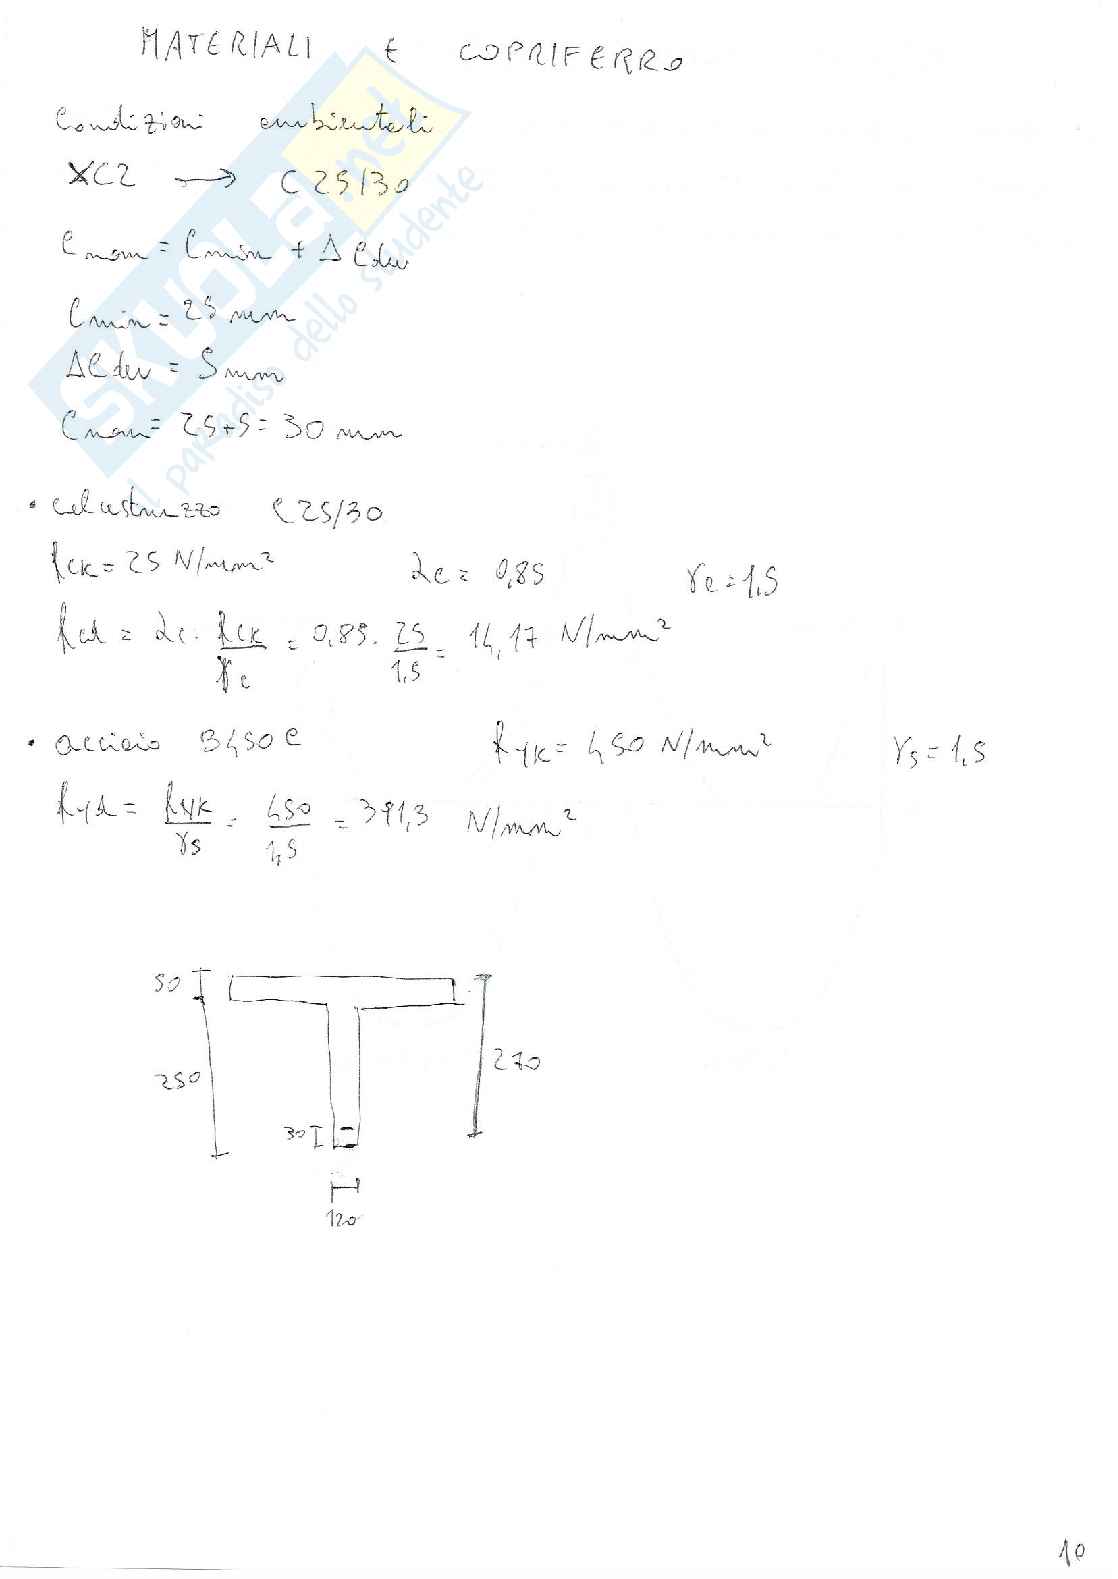 MATERIALI E COPRIFERRO
Condizioni ambientali
XC2 → C 25/30
Cnom = Cmin + ΔCdev
Cmin = 25 mm
ΔCdev = 5 mm
Cnom = 25+5 = 30 mm
• calcestruzzo C25/30
fck = 25 N/mm² αc = 0,85 γc = 1,5
fcd = αc · fck/γc = 0,85 · 25/1,5 = 14,17 N/mm²
• acciaio B450C fyk = 450 N/mm² γs = 1,5
fyd = fyk/γs = 450/1,5 = 391,3 N/mm²
50
250
270
30
120
10
SKUOLA.net
il paradiso dello studente